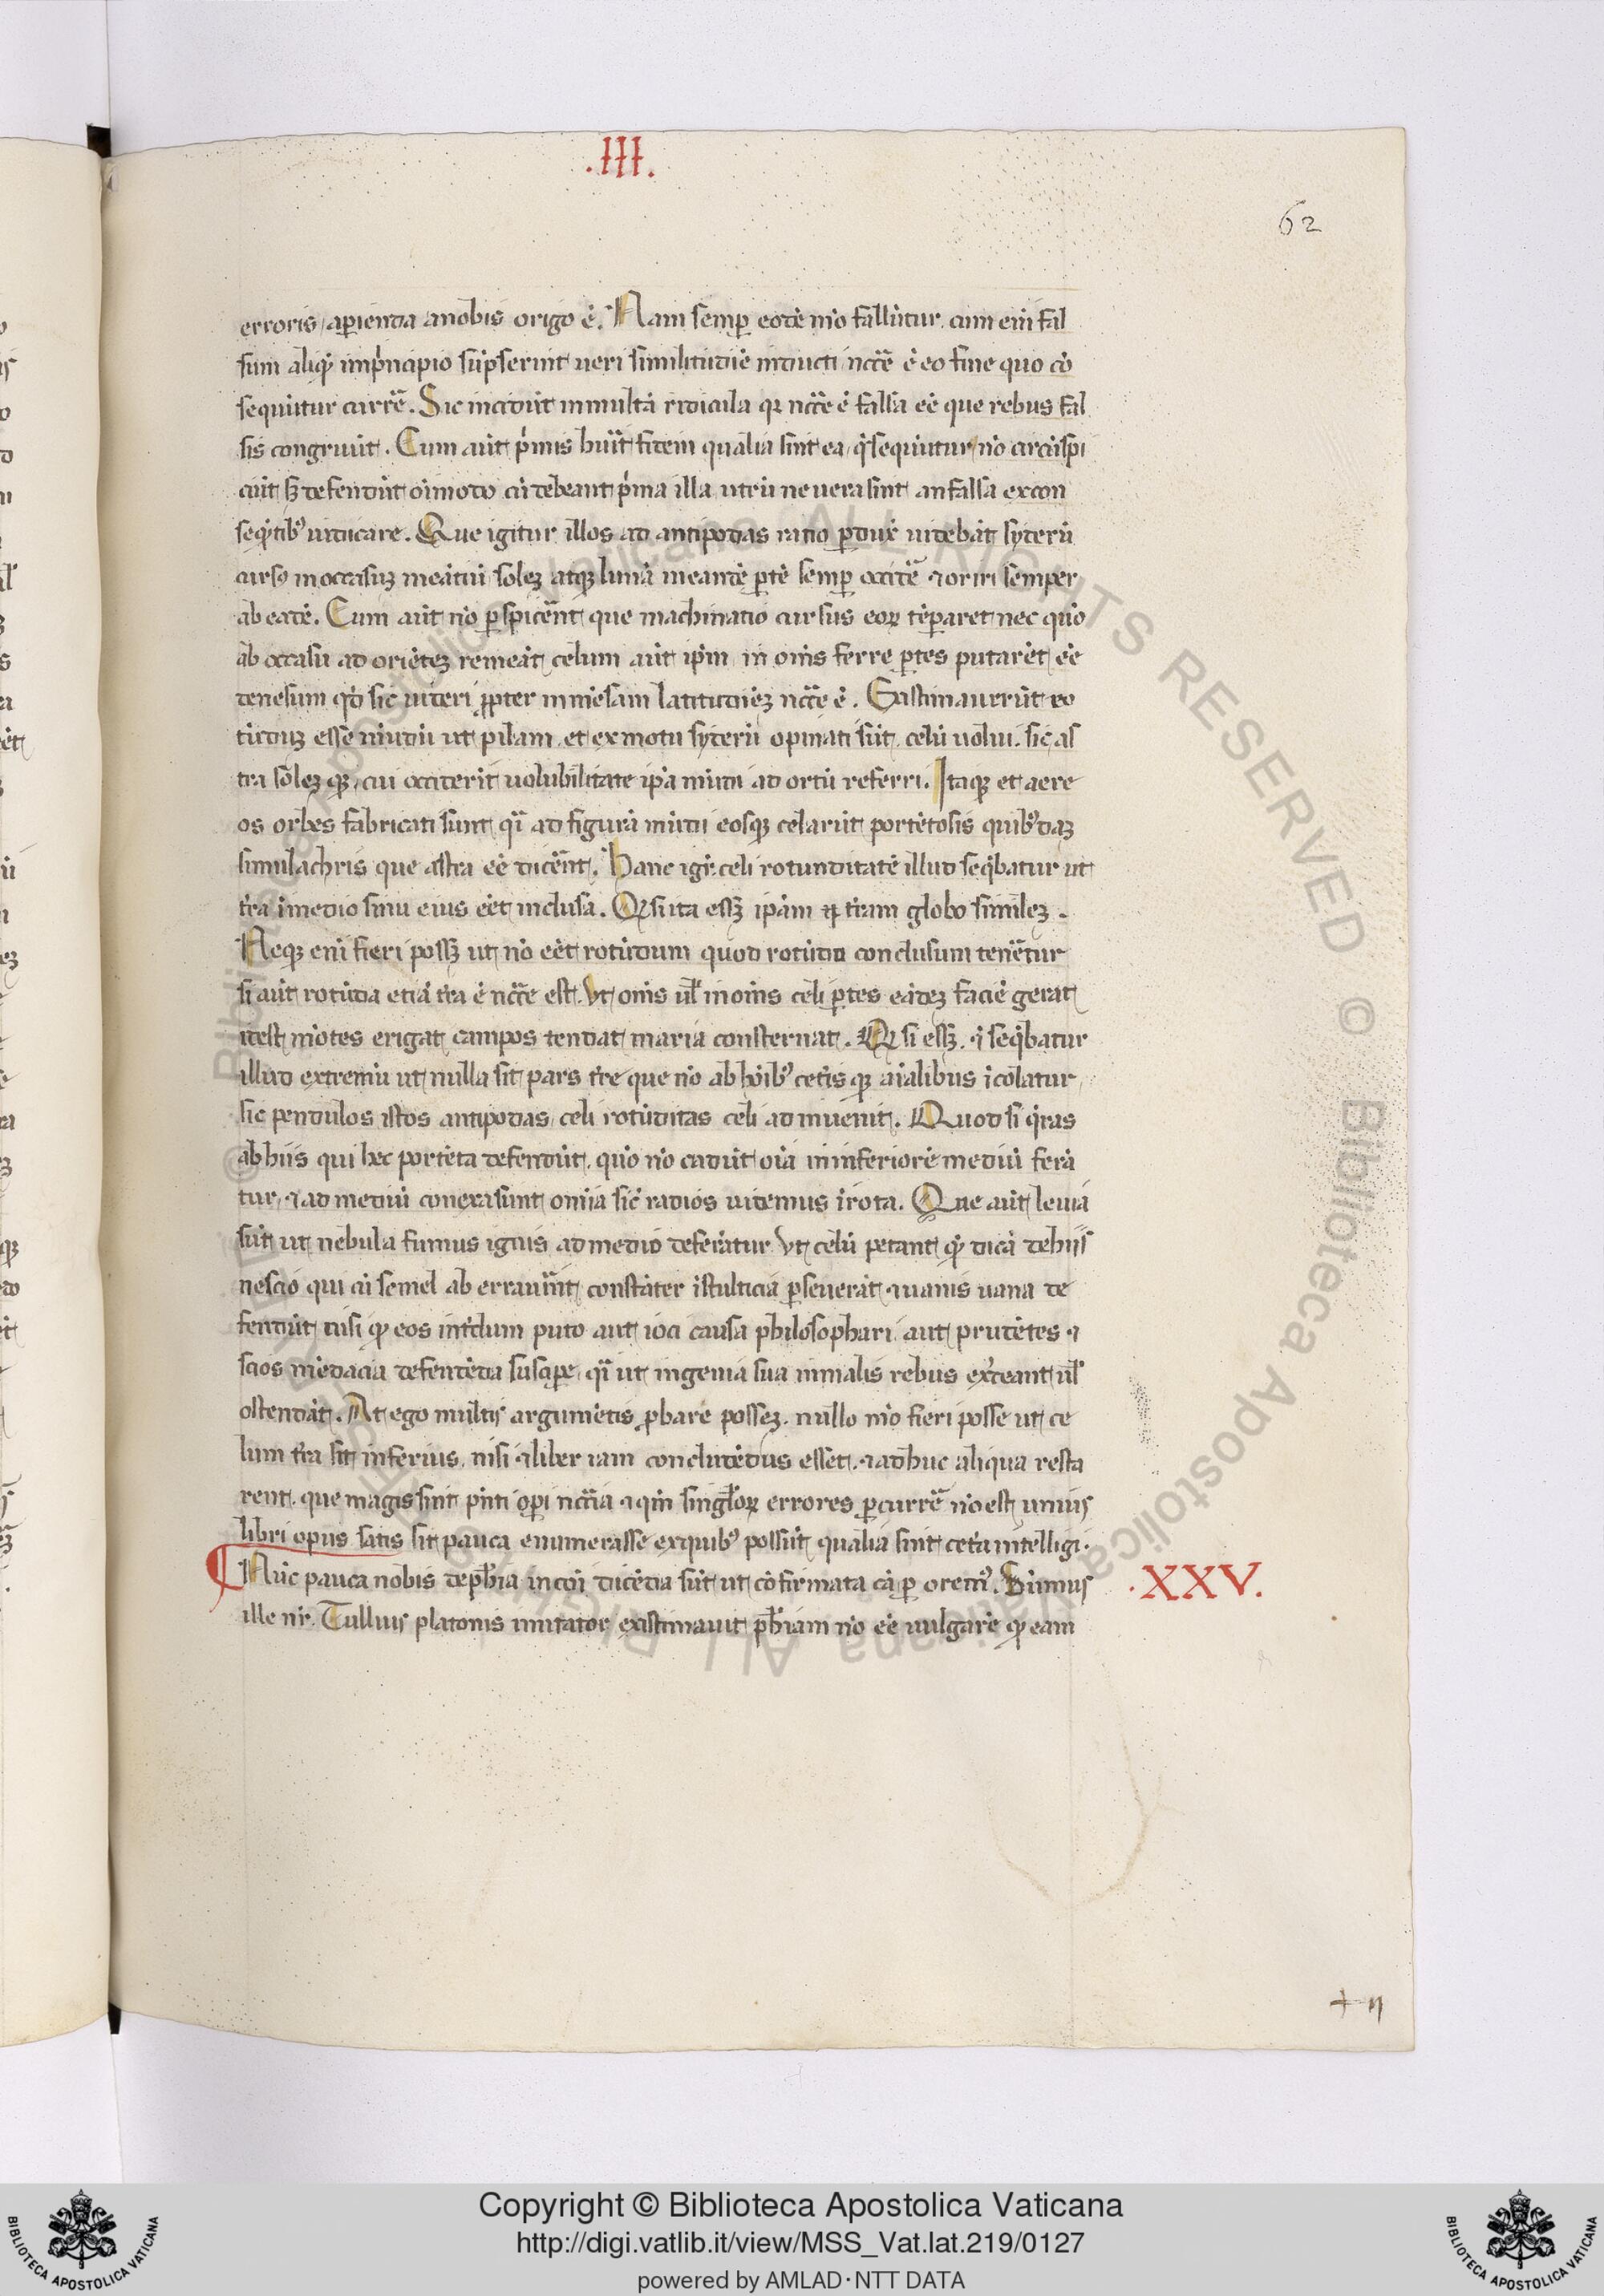 .III.
62
erroris aperienda a nobis origo ē. Nam semꝑ eodē mō fallūtur. cum eni fal
sum aliqđ inpͥncipio sūpserint ueri similitudīe inducti nccē ē eo fine quo cō
sequūtur currē. Sic incidūt in multa ridicula qꝛ nccē ē falsa eē que rebus fal
sis congruūt. Cum aūt pͥmis huīt fidem qualia sint ea q̄ sequūtur nō circūspi
ciūt sꝫ defendūt oī modo cū debeant pͥma illa utrū ne uera sint an falsa ex con
seqͣntibꝰ iudicare. Que igitur illos ad antipodas ratio ꝑdux̄ uidebāt syderū
cursꝰ in occasuꝫ meātiū soleꝫ atqꝫ lunā in eandē ꝑtē semꝑ occidē ⁊ oriri semper
ab eadē. Cum aūt nō ꝑspicēnt que machinatio cursus eoꝝ tēparet nec quō
ab occasu ad oriēteꝫ remeāt celum aūt ipm in omīs ferre ꝑtes putarēt eē
deuexum qđ sic uideri ꝓpter inmēsam latitudīeꝫ nccē ē. Existimauerūt ro
tūduꝫ esse mūdū ut pilam et ex motu syderū opinati sūt celū uolui. sic as
tra soleꝫ qꝫ cū occiderīt uolubilitate ipa mūdi ad ortū referri. Itaqꝫ et aere
os orbes fabricati sunt q̄i ad figurā mūdi eosqꝫ celarūt portētosis quibꝰdaꝫ
simulachris que astra eē dicēnt. Hanc igr̄ celi rotunditatē illud seqͣbatur ut
tr̄a ī medio sinu eius eēt inclusa. Qđ si ita esꝫ ipam ⁊ tr̄am globo similem.
Neqꝫ eni fieri possꝫ ut nō eēt rotūdum quod rotūdo conclusum tenētur
si aūt rotūda etiā tr̄a ē nccē est. Vt omīs ul̄ in omīs celi ꝑtes eādeꝫ faciē gerat
idest mōtes erigat campos tendat maria consternat. Qđ si esꝫ. ⁊ seqͣbatur
illud extremū ut nulla sit pars tr̄e que nō ab hoībꝰ ceterīs qꝫ aīalibus īcolatur
sic pendulos istos antipodas celi rotūditas celi ad inuenit. Quod si qͣras
ab hiis qui hec portēta defendūt. quō nō cadūt oīa in inferiorē mediū ferā
tur. ⁊ ad mediū conexa sunt omīa sic̄ radios uidemus ī rota. Que aūt leuia
sūt ut nebula fumus ignis ad medio deferātur Vt celū petant qđ dicā de hiis
nescio qui cū semel ab errauīnt constāter ī stulticia ꝑseuerāt ⁊ uanis uana de
fendūt nisi qđ eos intdum puto aut ioci causa philosophari aut prudētes ⁊
scios mēdacia defendēda suscipe q̄i ut ingenia sua in malis rebus ex̄ceant ul̄
ostendāt. At ego multis argumētis ꝓbare posseꝫ. nullo mō fieri posse ut ce
lum tr̄a sit inferius. nisi ⁊ liber iam concludēdus esset. ⁊ adhuc aliqua resta
rent. que magis sint pn̄ti opi nccīa ⁊ qm singl̄oꝝ errores ꝑcurrē nō est unius
libri opus satis sit pauca enumerasse ex quibꝰ possūt qualia sint cetā intelligi.
Nūc pauca nobis de ph̄ia in coī dicēda sūt ut cōfirmata cā ꝑ oremꝰ. Sūmus .XXV.
ille nr̄. Tullius platonis imitator existimauit ph̄iam nō eē uulgarē qđ eam
+ 11
© Biblioteca Apostolica Vaticana ALL RIGHTS RESERVED © Biblioteca Apostolica Vaticana ALL RIGHTS RESERVED
Copyright © Biblioteca Apostolica Vaticana
http://digi.vatlib.it/view/MSS_Vat.lat.219/0127
powered by AMLAD·NTT DATA
BIBLIOTECA APOSTOLICA VATICANA
BIBLIOTECA APOSTOLICA VATICANA